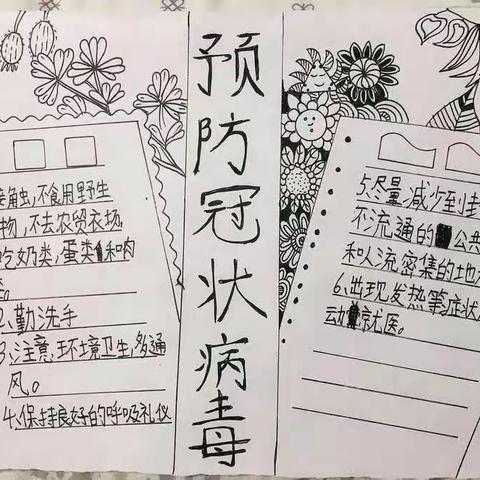 预防冠状病毒
接触虫,不食用野生
物,不去农贸衣场
吃奶类,蛋类和肉
2、勤洗手
3、注意,环境卫生,多通
风。
4、保持良好的呼吸礼仪
5、尽量减少到封
不流通的公共
和人流密集的地
6、出现发热等症状
动就医。